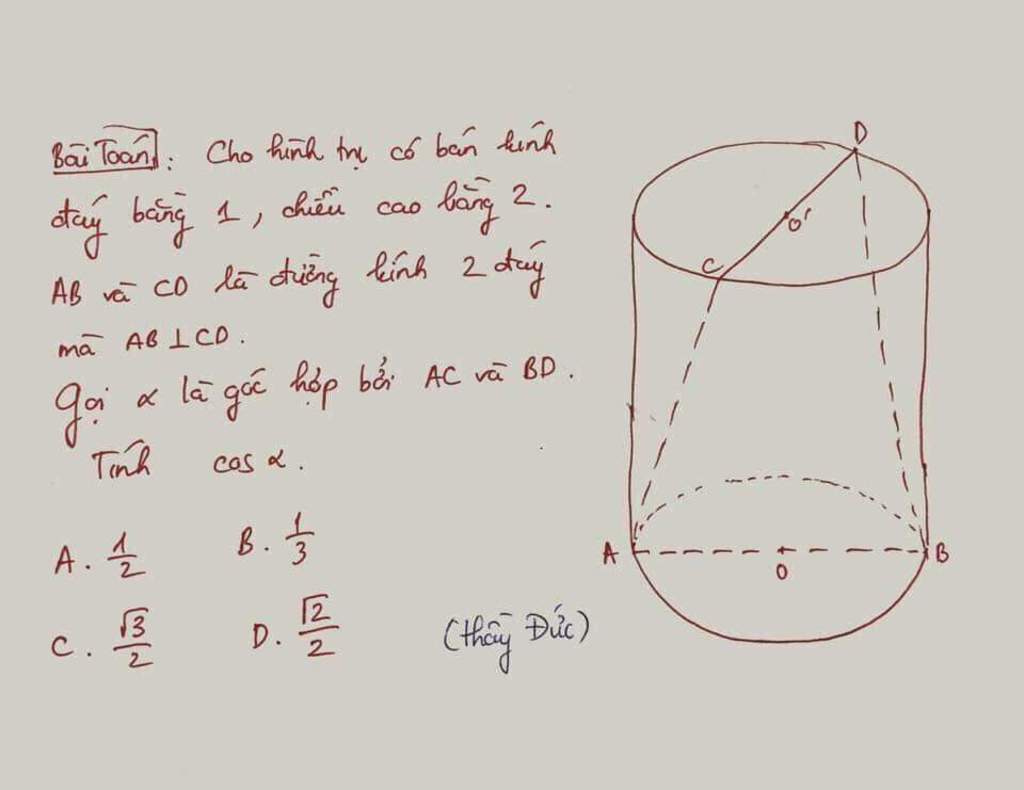 Bài Toán: Cho hình trụ có bán kính
đáy bằng 1, chiều cao bằng 2.
AB và CD là đường kính 2 đáy
mà AB ⊥ CD.
Gọi α là góc hợp bởi AC và BD.
Tính cos α.
A. 1/2 B. 1/3
C. √3/2 D. √2/2 (thầy Đức)
D
O'
C
A O B